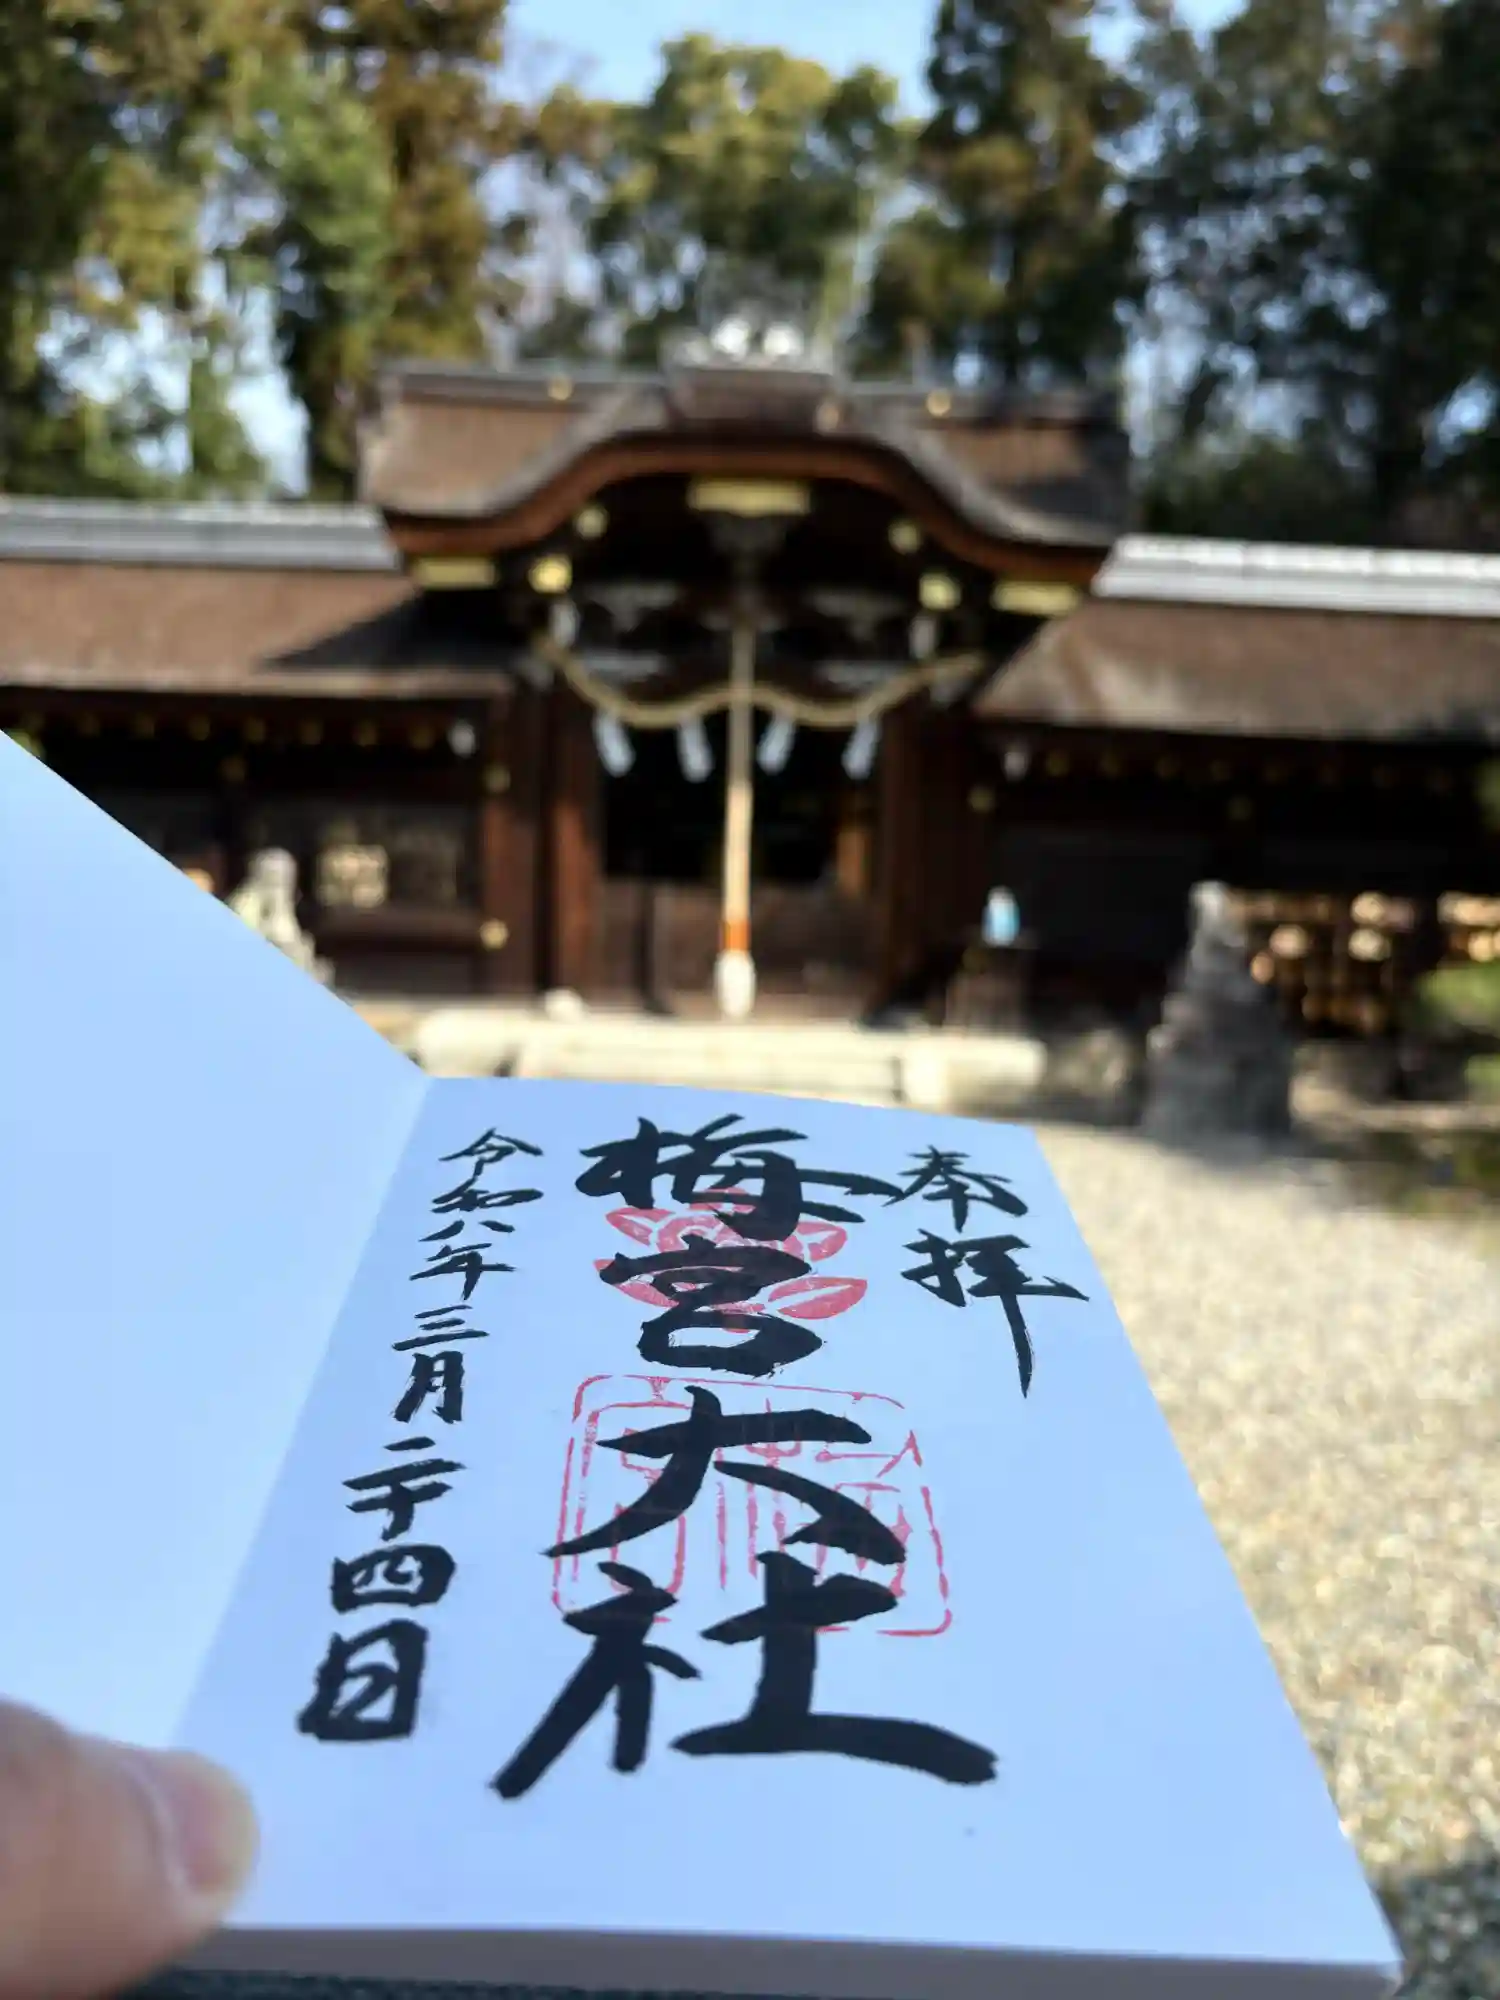 奉拝
梅宮大社
令和八年三月二十四日